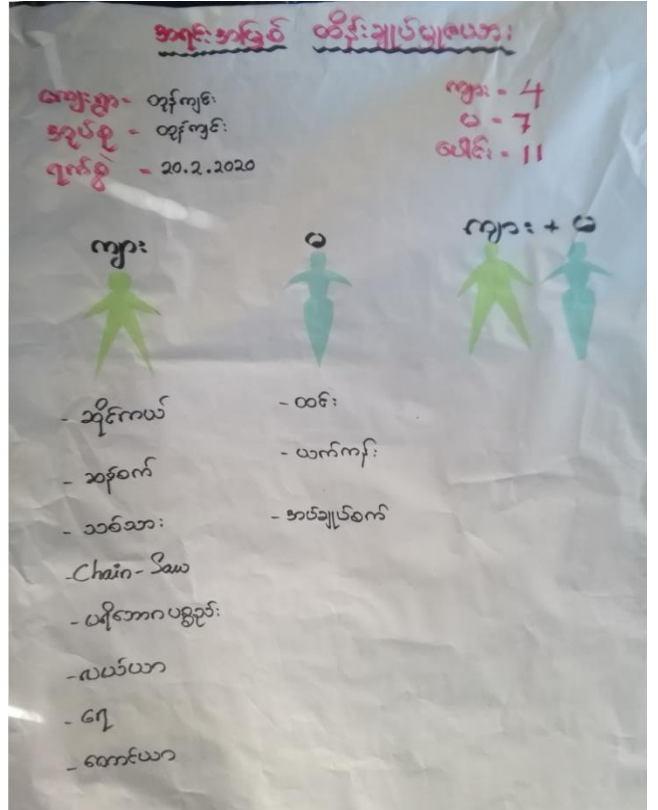 အရင်းအမြစ် ထိန်းချုပ်မှုဇယား
ကျေးရွာ - တုန်ကျင်း
အုပ်စု - တုန်ကျင်း
ရက်စွဲ - 20.2.2020
ကျား - 4
မ - 7
ပေါင်း - 11
ကျား
မ
ကျား + မ
- ဆိုင်ကယ်
- ဆန်စက်
- သစ်သား
- Chain-Saw
- ပရိဘောဂပစ္စည်း
- လယ်ယာ
- ရေ
- တောင်ယာ
- ထင်း
- ယက်ကန်း
- အပ်ချုပ်စက်